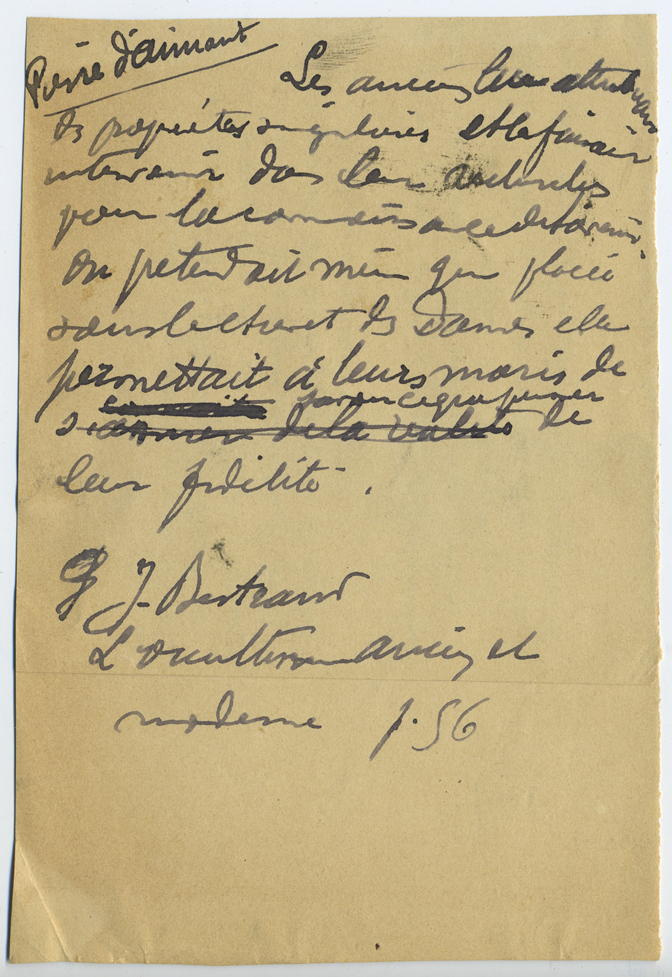 Pierre d'aimant
Les anciens leur attribuaient
des propriétés singulières et la faisaient
intervenir dans leur recherches
pour la connaissance de l'avenir.
On prétendait même que placée
sous le chevet des Dames elle
permettait à leurs maris de
savoir ce qu'a penser
s'assurer de la valeur de
leur fidélité.
J. Bertrand
L'occultisme ancien et
moderne p. 56